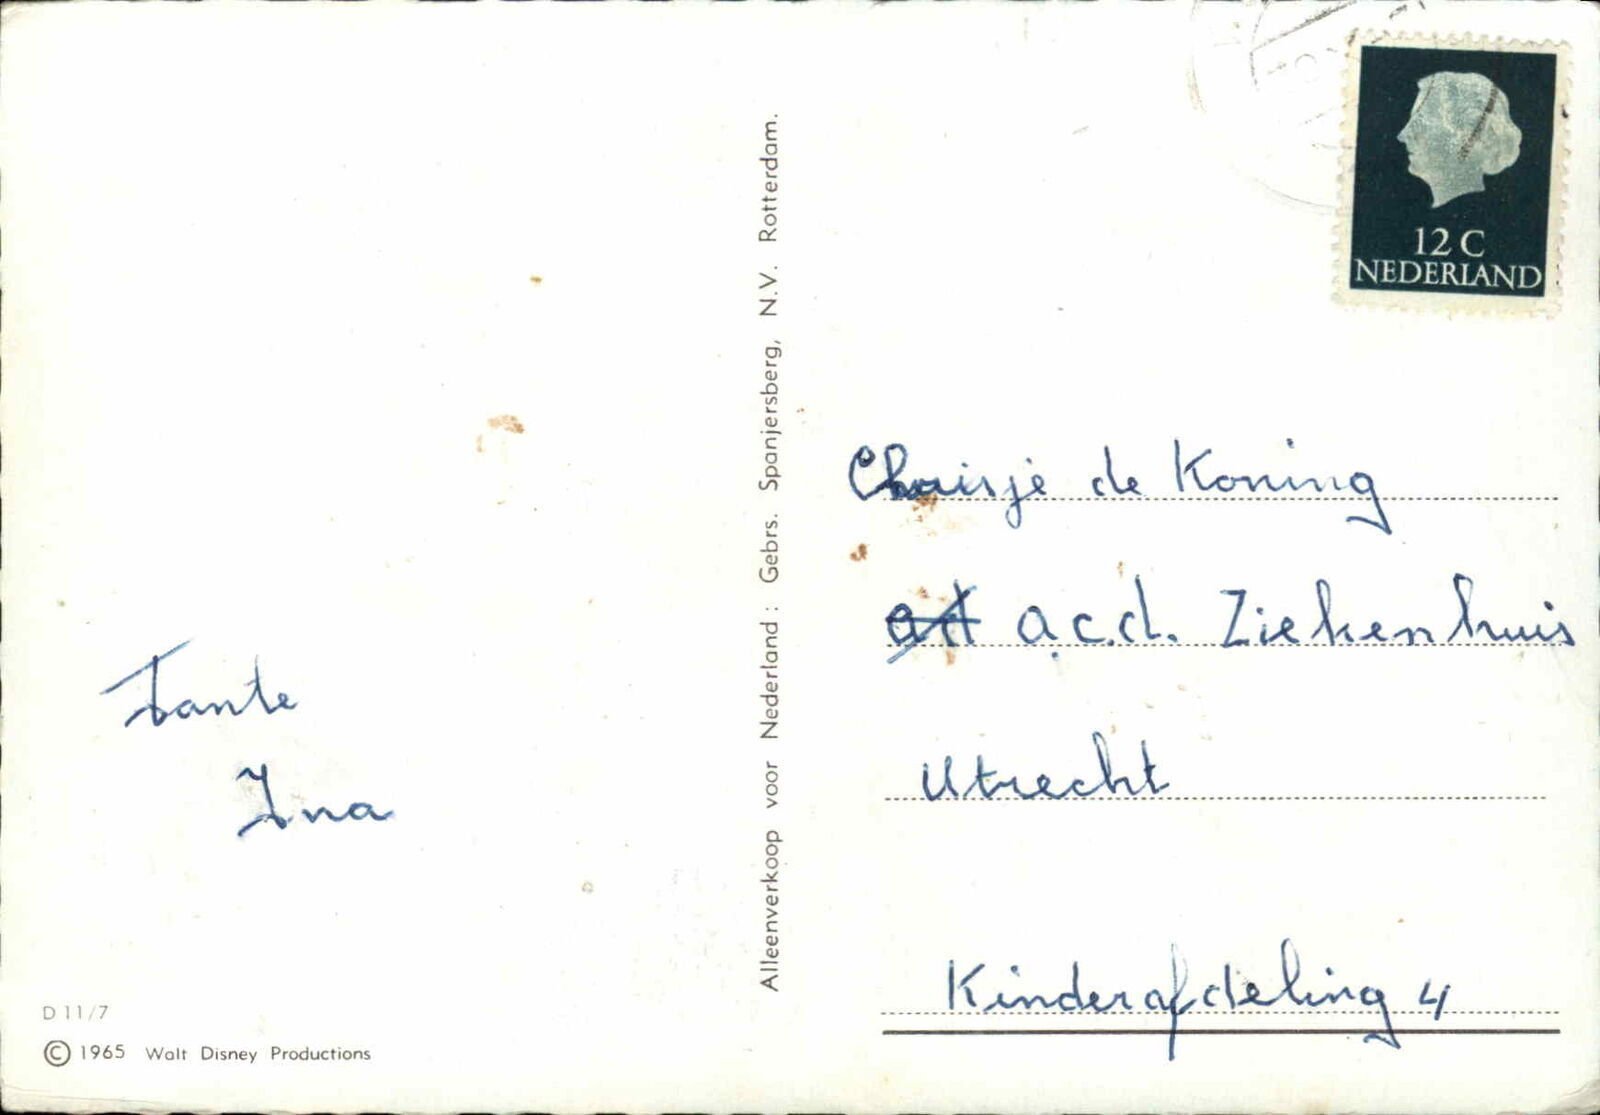 12 C
NEDERLAND
Tante
Ina
D 11/7
© 1965 Walt Disney Productions
Alleenverkoop voor Nederland : Gebrs. Spanjersberg, N.V. Rotterdam.
de Koning
a.c.d. Ziekenhuis
Utrecht
Kinderafdeling 4